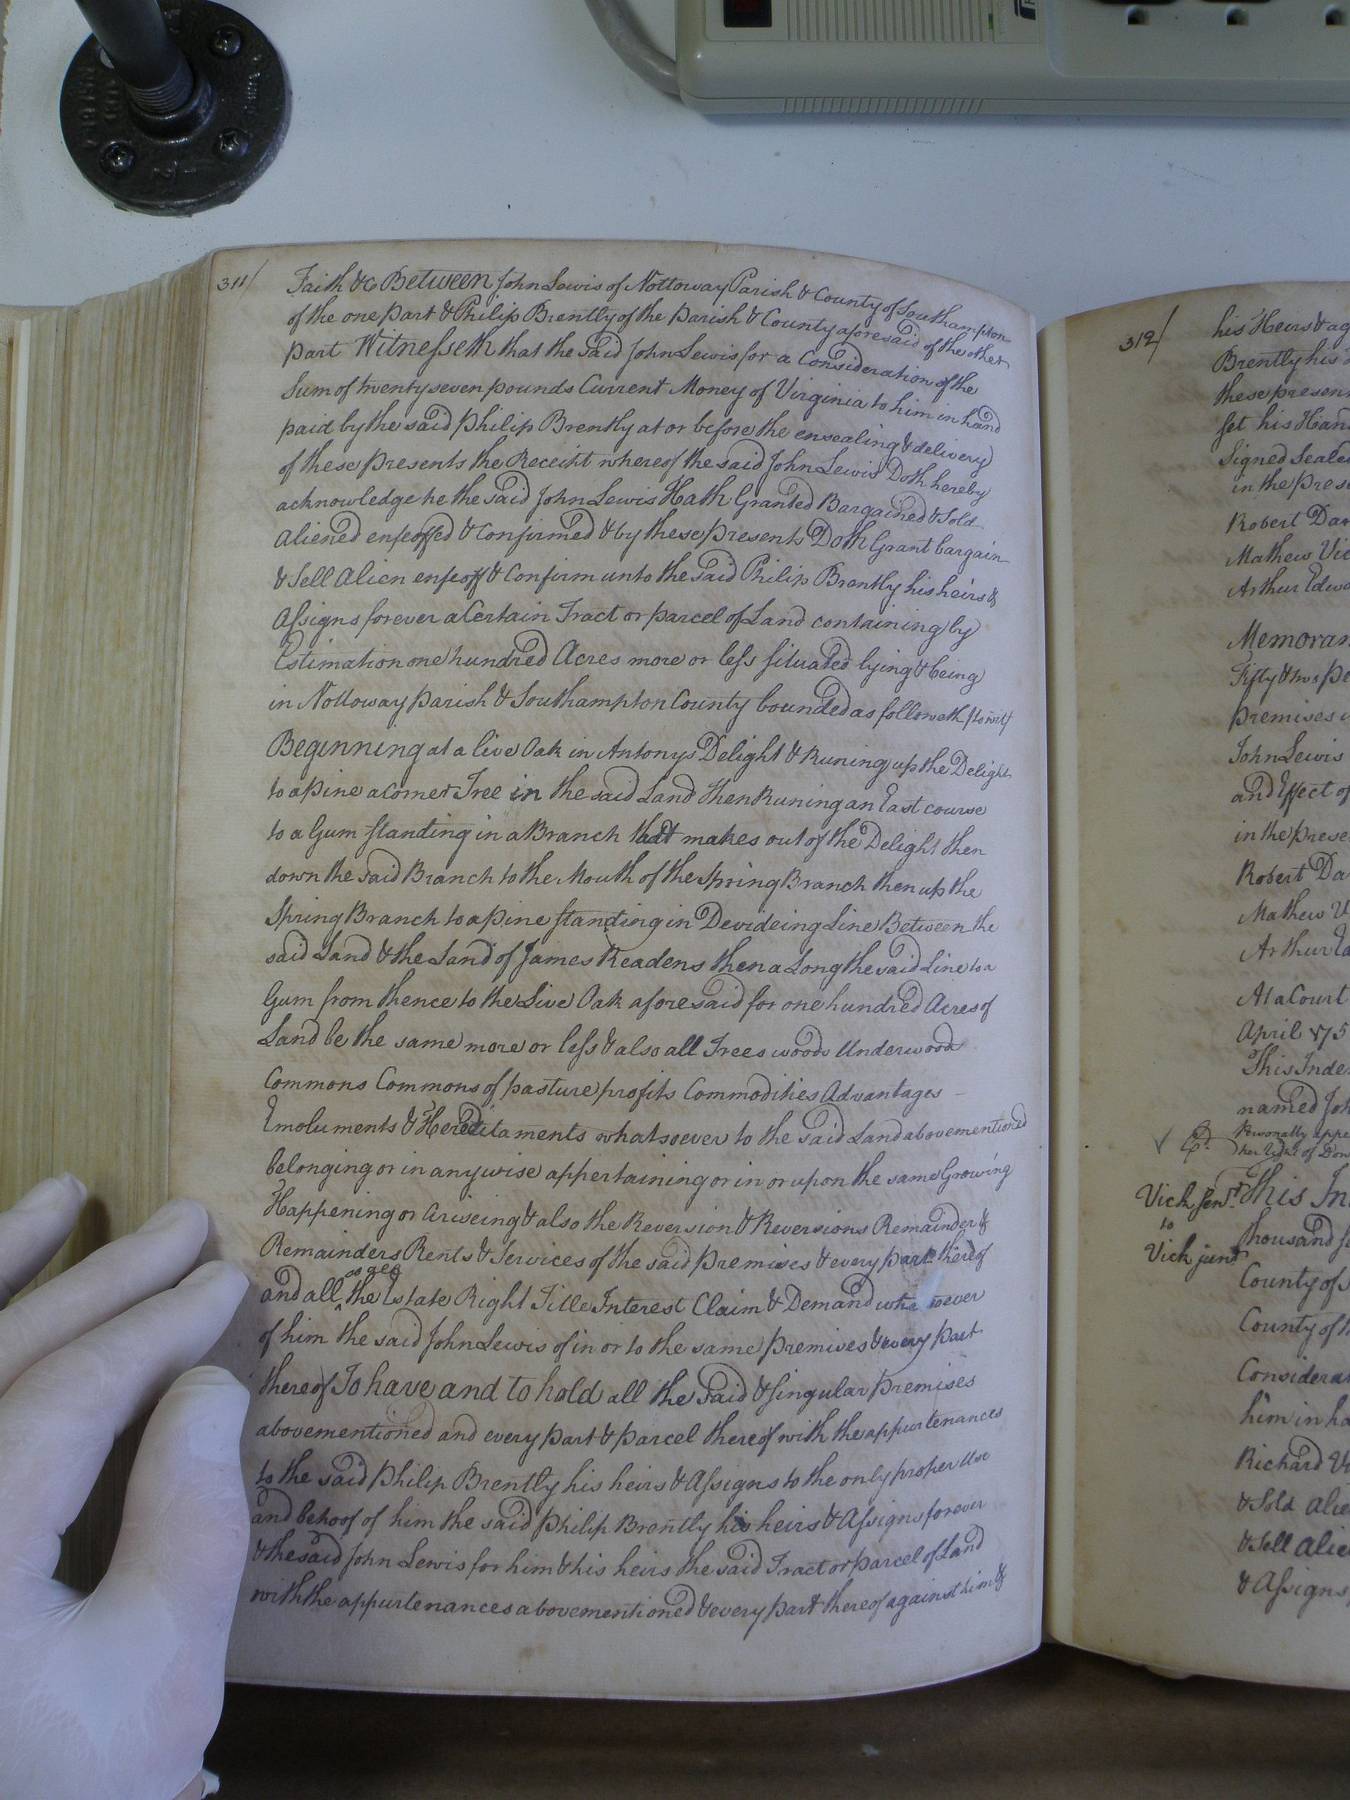 311/
Faith &c Between John Lewis of Nottoway Parish & County of Southampton
of the one part & Philip Brently of the Parish & County aforesaid of the other
part Witnesseth that the said John Lewis for a Consideration of the
Sum of twenty seven pounds Current Money of Virginia to him in hand
paid by the said Philip Brently at or before the ensealing & delivery
of these presents the Receipt whereof the said John Lewis Doth hereby
acknowledge he the said John Lewis Hath Granted Bargained & Sold
Aliened enfeoffed & Confirmed & by these presents Doth Grant bargain
& Sell Alien enfeoff & Confirm unto the said Philip Brently his heirs &
Assigns forever a Certain Tract or parcel of Land containing by
Estimation one hundred Acres more or less situated lying & being
in Nottoway parish & Southampton County bounded as followeth (towit)
Beginning at a live Oak in Antonys Delight & Runing up the Delight
to a pine a Corner Tree in the said Land then Runing an East course
to a Gum standing in a Branch that makes out of the Delight then
down the said Branch to the Mouth of the Spring Branch then up the
Spring Branch to a pine standing in Devideing Line Between the
said Land & the Land of James Readens then a Long the said Line to a
Gum from thence to the Live Oak aforesaid for one hundred Acres of
Land be the same more or less & also all Trees woods Underwoods
Commons Commons of pasture profits Commodities Advantages
Emoluments & Hereditaments whatsoever to the said Land abovementioned
belonging or in anywise appertaining or in or upon the same Growing
Happening or Ariseing & also the Reversion & Reversions Remainder &
Remainders Rents & Services of the said Premises & every part thereof
and all the Estate Right Title Interest Claim & Demand whatsoever
of him the said John Lewis of in or to the same premises & every part
thereof To have and to hold all the said & Singular Premises
abovementioned and every part & parcel thereof with the appurtenances
to the said Philip Brently his heirs & Assigns to the only proper Use
and behoof of him the said Philip Brently his heirs & Assigns forever
& the said John Lewis for him & his heirs the said Tract or parcel of Land
with the appurtenances abovementioned & every part thereof against him &
312/
his Heirs & ag
Brently his
these presen
set his Han
Signed Seale
in the pres
Robert Dav
Mathew Vic
Arthur Edw
Memoran
Fifty & two pe
premises w
John Lewis
and Effect of
in the prese
Robert Da
Mathew V
Arthur Ed
At a Court
April 175
This Inde
named Joh
Personally appe
her Right of Dow
Vick sen.r This In
to
thousand se
Vick jun.r
County of S
County of
Considera
him in ha
Richard Vi
& Sold Alie
& Sell Alie
& Assigns